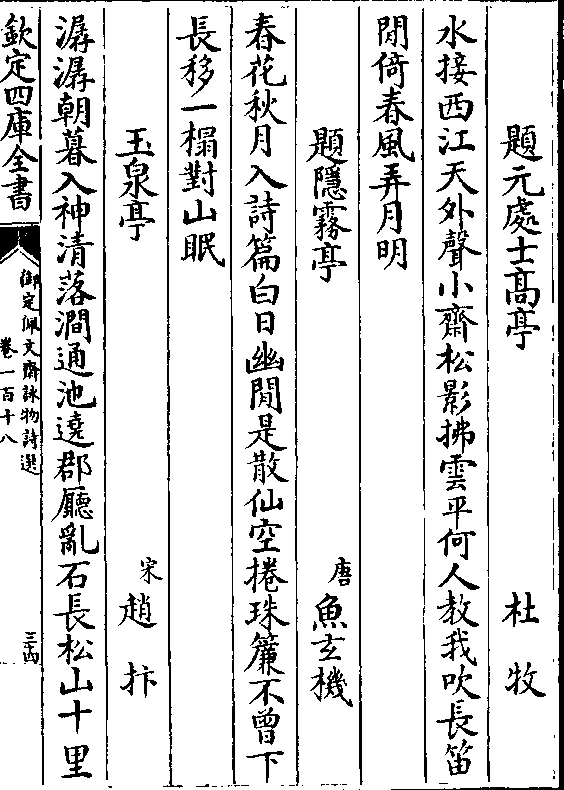 題元處士髙亭　杜牧
水接西江天外聲小齋松影拂雲平何人教我吹長笛
閒倚春風弄月明
題隱霧亭　唐魚玄機
春花秋月入詩篇白日幽閒是散仙空捲珠簾不曾下
長移一榻對山眠
玉泉亭　宋趙抃
潺潺朝暮入神清落澗通池遶郡廳亂石長松山十里
欽定四庫全書
御定佩文齋詠物詩選
卷一百十八
三十四